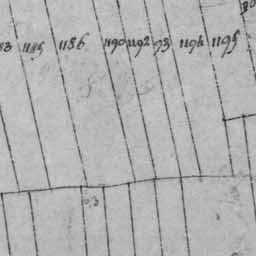 1185 1186 1190 1192 93 1194 1195